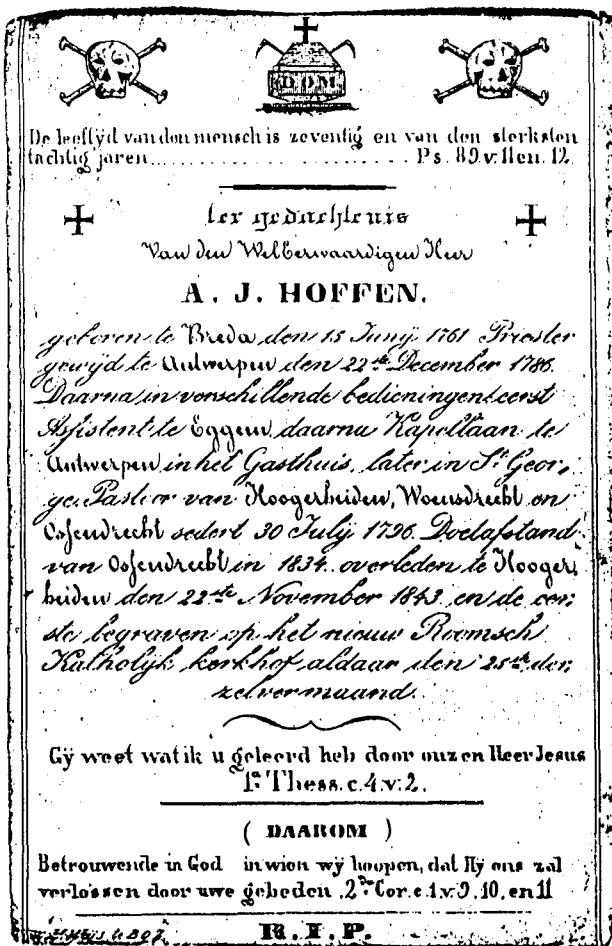 D.O.M.
De leeftyd van den mensch is zeventig en van den sterksten
tachtig jaren.................................Ps. 89.v:11 en. 12.
ter gedachtenis
Van den WelEerwaardigen Heer
A. J. HOFFEN.
geboren te Breda den 15 Junij 1761 Priester
gewijd te Antwerpen den 22ste December 1786.
Daarna in verschillende bedieningen: eerst
Assistent te Eggem, daarna Kapellaan te
Antwerpen in het Gasthuis, later in St. Geor,
ge. Pastoor van Hoogerheiden, Woensdrecht en
Ossendrecht sedert 30 Julij 1796. Doet afstand
van Ossendrecht in 1834. overleden te Hooger,
heiden den 22ste November 1843 en de eer,
ste begraven op het nieuw Roomsch
Katholijk kerkhof aldaar den 25ste der,
zelver maand.
Gij weet wat ik u geleerd heb door onzen Heer Jesus
1e. Thess. c. 4. v: 2.
( DAAROM )
Betrouwende in God in wien wij hoopen, dat Hij ons zal
verlossen door uwe gebeden. 2de Cor. c. 1. v. 9. 10. en 11
R. I. P.